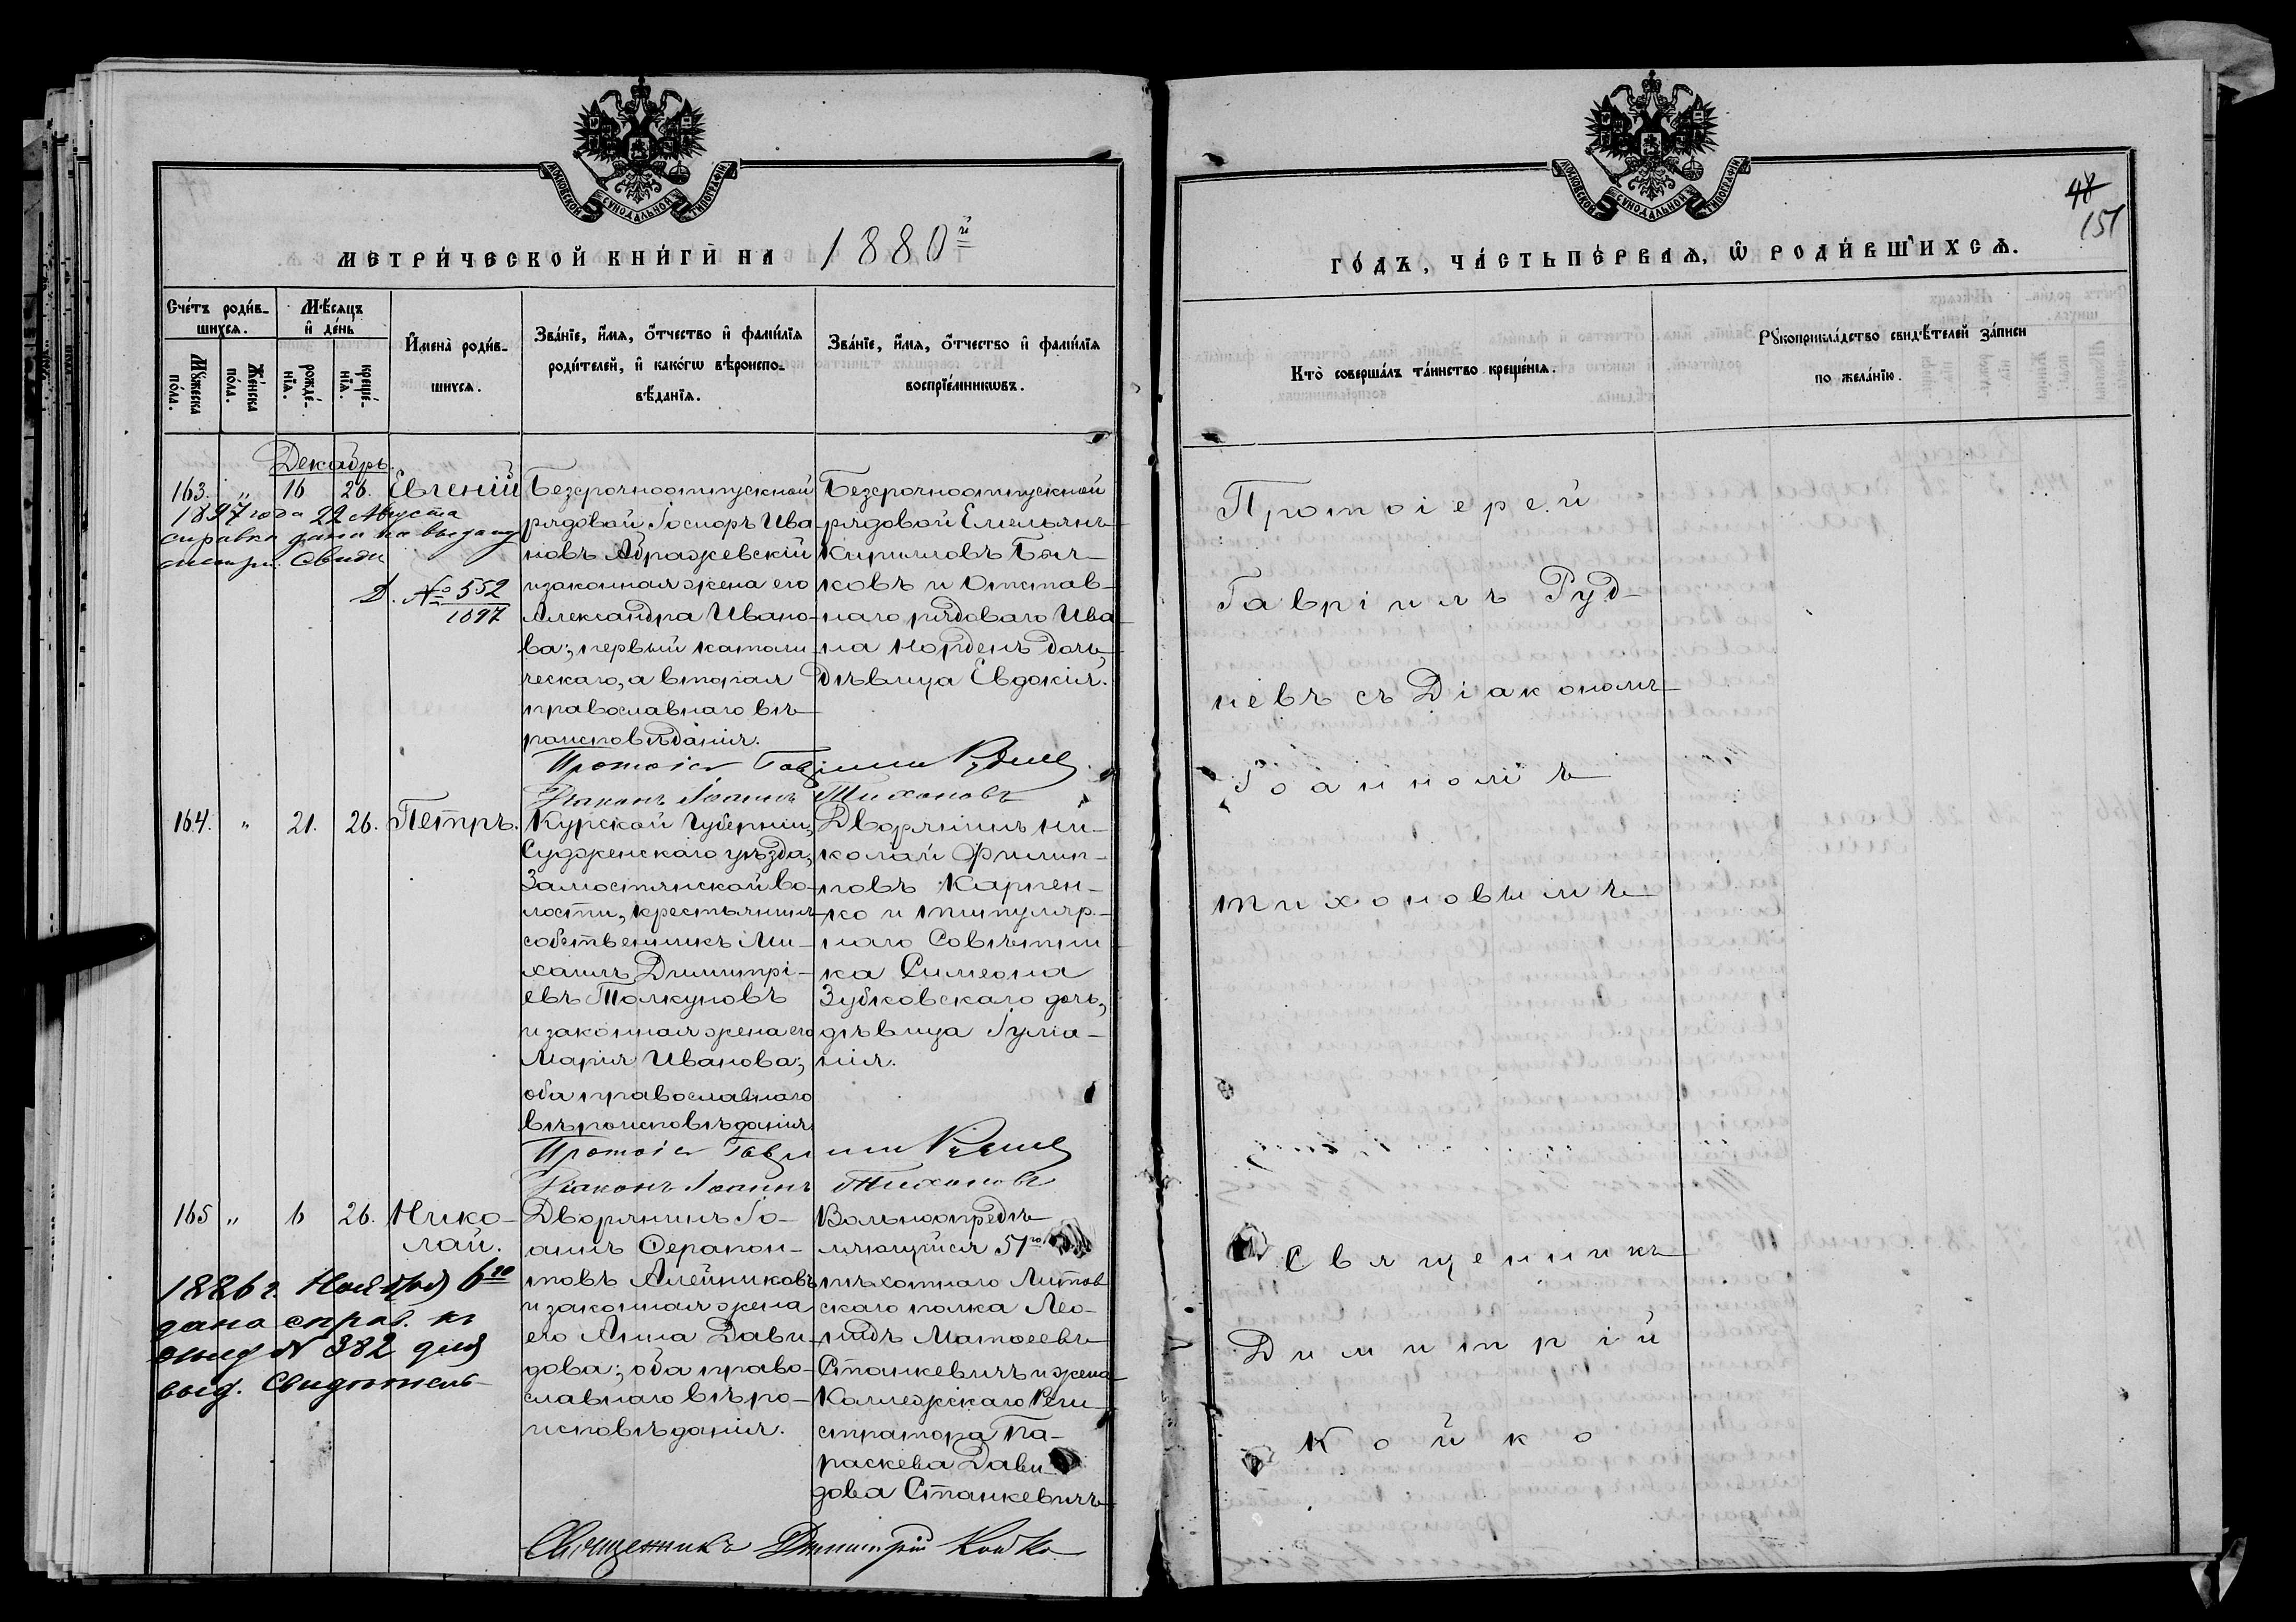 МОСКОВСКОЙ СѴНОДАЛЬНОЙ ТИПОГРАФІИ
МЕТРИ́ЧЕСКОЙ КНИ́ГИ НА 1880й
Сче́тъ роди́в-
шихся.
Мꙋ́жеска
по́ла.
Же́нска
по́ла.
Мѣ́сяцъ
и҆ де́нь
рожде́-
нїѧ.
креще́-
нїѧ.
И҆мена̀ роди́в-
шихся.
Зва́нїе, и҆́мѧ, ѻ҆́тчество и҆ фами́лїѧ
роди́телей, и҆ како́гѡ вѣроиспо-
вѣ́данїѧ.
Зва́нїе, и҆́мѧ, ѻ҆́тчество и҆ фами́лїѧ
воспрїе́мникѡвъ.
Декабрь.
163. " 16 26. Евгеній
1897 года 22 Августа
справка дана на выдачу
метри. Свиди
Д. № 552
1897
Безсрочноотпускной
рядовой Іосифъ Ива
новъ Абражевскій
и законная жена его
Александра Ивано-
ва; первый католи-
ческаго, а вторая
православнаго вѣ-
роисповѣданія.
Безсрочноотпускной
рядовой Емельянъ
Кирилловъ Быч-
ковъ и Отстав-
наго рядоваго Ива-
на Норденъ дочь,
дѣвица Евдокія.
Протоіер Гавріилъ Рудневъ
Діаконъ Іоаннъ Тихоновъ
164. " 21. 26. Петръ.
Курской Губерніи,
Судженскаго уѣзда,
Замостянской во-
лости, крестьянинъ
собственникъ Ми-
хаилъ Димитрі-
евъ Толкуновъ
и законная жена его
Марія Иванова;
оба православнаго
вѣроисповѣданія
Дворянинъ Ни-
колай Филип-
повъ Карпен-
ко и титуляр-
наго Совѣтни-
ка Симеона
Зубковскаго дочь,
дѣвица Іуліа-
нія.
Протоіер Гавріилъ Рудневъ
Діаконъ Іоаннъ Тихоновъ
165 " 6 26. Нико-
лай.
1886 г. Ноября 6го
дана справ. къ
№ 382 для
выд. Свидѣтель-
Дворянинъ Іо-
аннъ Ѳерапон-
товъ Алейниковъ
и законная жена
его Анна Дави-
дова; оба право-
славнаго вѣро-
исповѣданія.
Вольноопредѣ-
ляющійся 51го
пѣхотнаго Литов
скаго полка Лео-
нидъ Матѳеевъ
Станкевичъ и жена
Коллежскаго Реги-
стратора Па-
раскева Дави-
дова Станкевичъ
Священникъ Димитрій Койко
МОСКОВСКОЙ СѴНОДАЛЬНОЙ ТИПОГРАФІИ
48
151
ГО́ДЪ, ЧА́СТЬ ПЕ́РВАЯ, Ѡ҆ РОДИ́ВШИХСѦ.
Кто̀ соверша́лъ та́инство креще́нїѧ.
Рꙋкоприкла́дство свидѣ́телей за́писи
по жела́нїю.
Протоіерей
Гавріилъ Руд-
невъ съ Діакономъ
Іоанномъ
Тихоновымъ
Священникъ
Димитрій
Койко